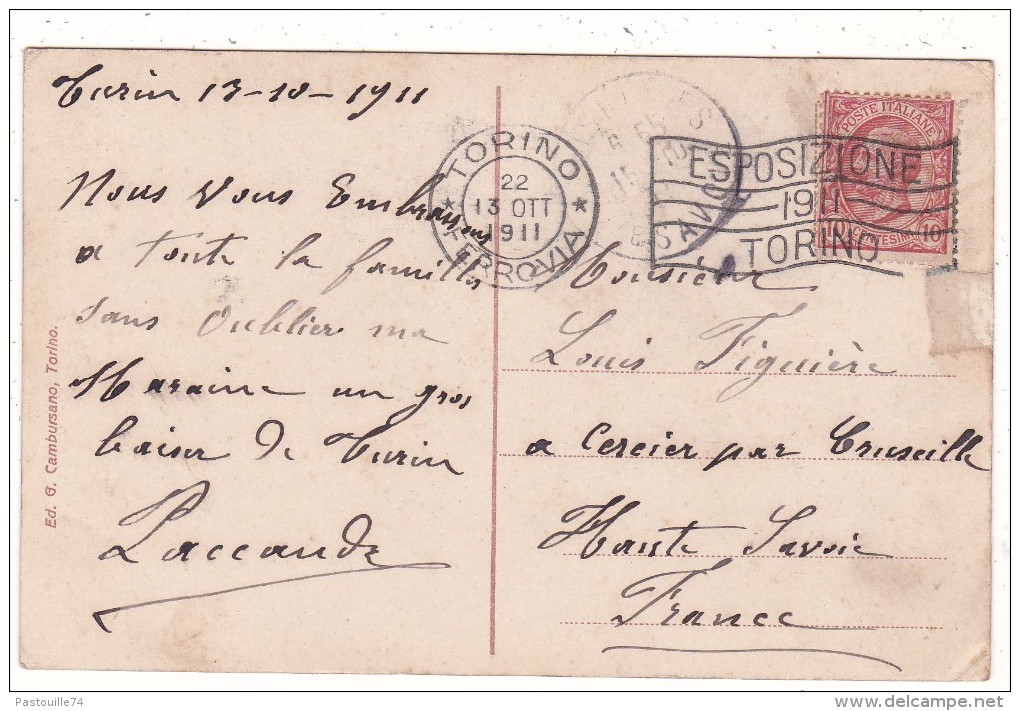 Turin 13-10-1911
Nous Vous Embrassons
a toute la famille
sans oublier ma
Maraine un gros
baiser de Turin
Laccande
Ed. G. Cambursano, Torino.
TORINO
22
13 OTT
1911
FERROVIA
SAVOIE
ESPOSIZIONE
1911
TORINO
POSTE ITALIANE
10 CENTESIMI 10
Monsieur
Louis Figuière
a Cercier par Cruseille
Haute Savoie
France
Pastouille74
www.delcampe.net